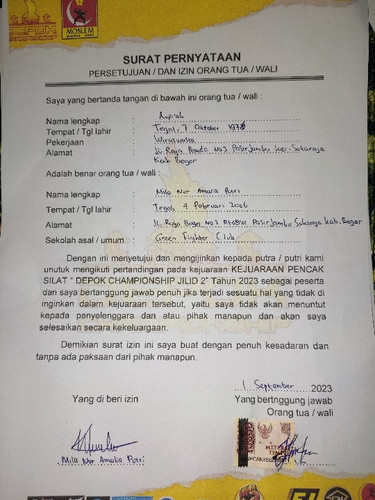 DEPOK
MOSLEM
SURAT PERNYATAAN
PERSETUJUAN / DAN IZIN ORANG TUA / WALI
Saya yang bertanda tangan di bawah ini orang tua / wali :
Nama lengkap :
Tempat / Tgl lahir : Tegal, 7 Oktober
Pekerjaan : Wiraswasta
Alamat : Jl. Raya No 3 Pasir Jambu Kec. Sukaraja
Kab Bogor
Adalah benar orang tua / wali :
Nama lengkap : Mila Nur Amalia Putri
Tempat / Tgl lahir : Tegal, 4 Februari 2006
Alamat : Jl. Raya No 3 Pasir Jambu Sukaraja Kab. Bogor
Sekolah asal / umum : Green Fighter Club
Dengan ini menyetujui dan mengijinkan kepada putra / putri kami
unutuk mengikuti pertandingan pada kejuaraan KEJUARAAN PENCAK
SILAT " DEPOK CHAMPIONSHIP JILID 2" Tahun 2023 sebagai peserta
dan saya bertanggung jawab penuh jika terjadi sesuatu hal yang tidak di
inginkan dalam kejuaraan tersebut, yaitu saya tidak akan menuntut
kepada penyelenggara dan atau pihak manapun dan akan saya
selesaikan secara kekeluargaan.
Demikian surat izin ini saya buat dengan penuh kesadaran dan
tanpa ada paksaan dari pihak manapun.
1 September 2023
Yang di beri izin
Yang bertnggung jawab
Orang tua / wali
Mila Nur Amalia Putri